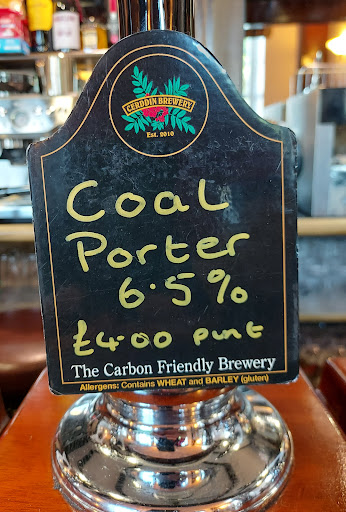 CERDDIN BREWERY
Est. 2010
COAL
PORTER
6.5%
£4.00 pint
The Carbon Friendly Brewery
Allergens: Contains WHEAT and BARLEY (gluten)